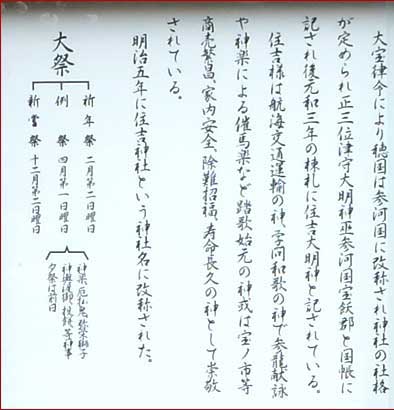 大宝律令により穂国は参河国に改称され神社の社格
が定められ正三位津守大明神坐参河国宝飫郡と国帳に
記され後元和三年の棟札に住吉大明神と記されている。
住吉様は航海交通運輸の神、学問和歌の神で参籠献詠
や神楽による催馬楽など踏歌始元の神或は宝ノ市等
商売繁昌、家内安全、除難招福、寿命長久の神として崇敬
されている。
明治五年に住吉神社という神社名に改称された。
大祭
祈年祭 二月第二日曜日
例祭 四月第一日曜日
新嘗祭 十二月第二日曜日
神楽
神輿渡御、投餅、等神事
夕祭は前日